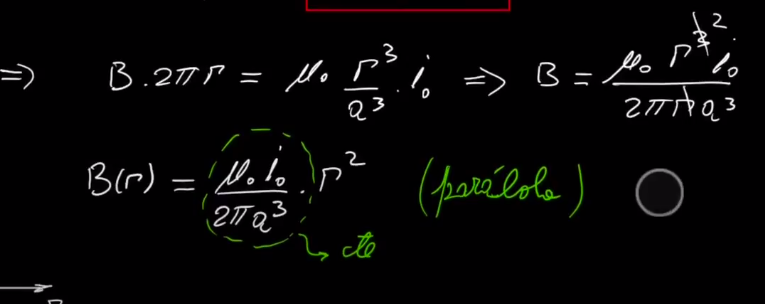 ⇒ B.2πr = μ₀ r³/a³ . i₀ ⇒ B = μ₀ r³ ² i₀ / 2π r a³
B(r) = μ₀ i₀ / 2π a³ . r² (parábola)
→ cte